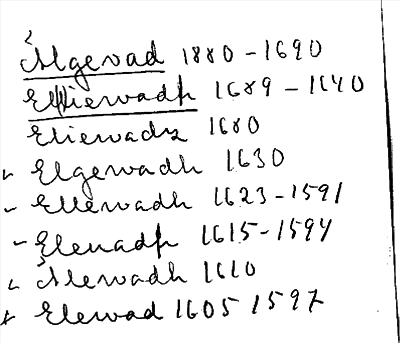 Algevad 1880 - 1690
Elliewadh 1689 - 1640
Eliewadz 1680
Elgewadh 1630
Ellewadh 1623 - 1591
Elenadh 1615 - 1594
Alewadh 1610
Elewad 1605 1597